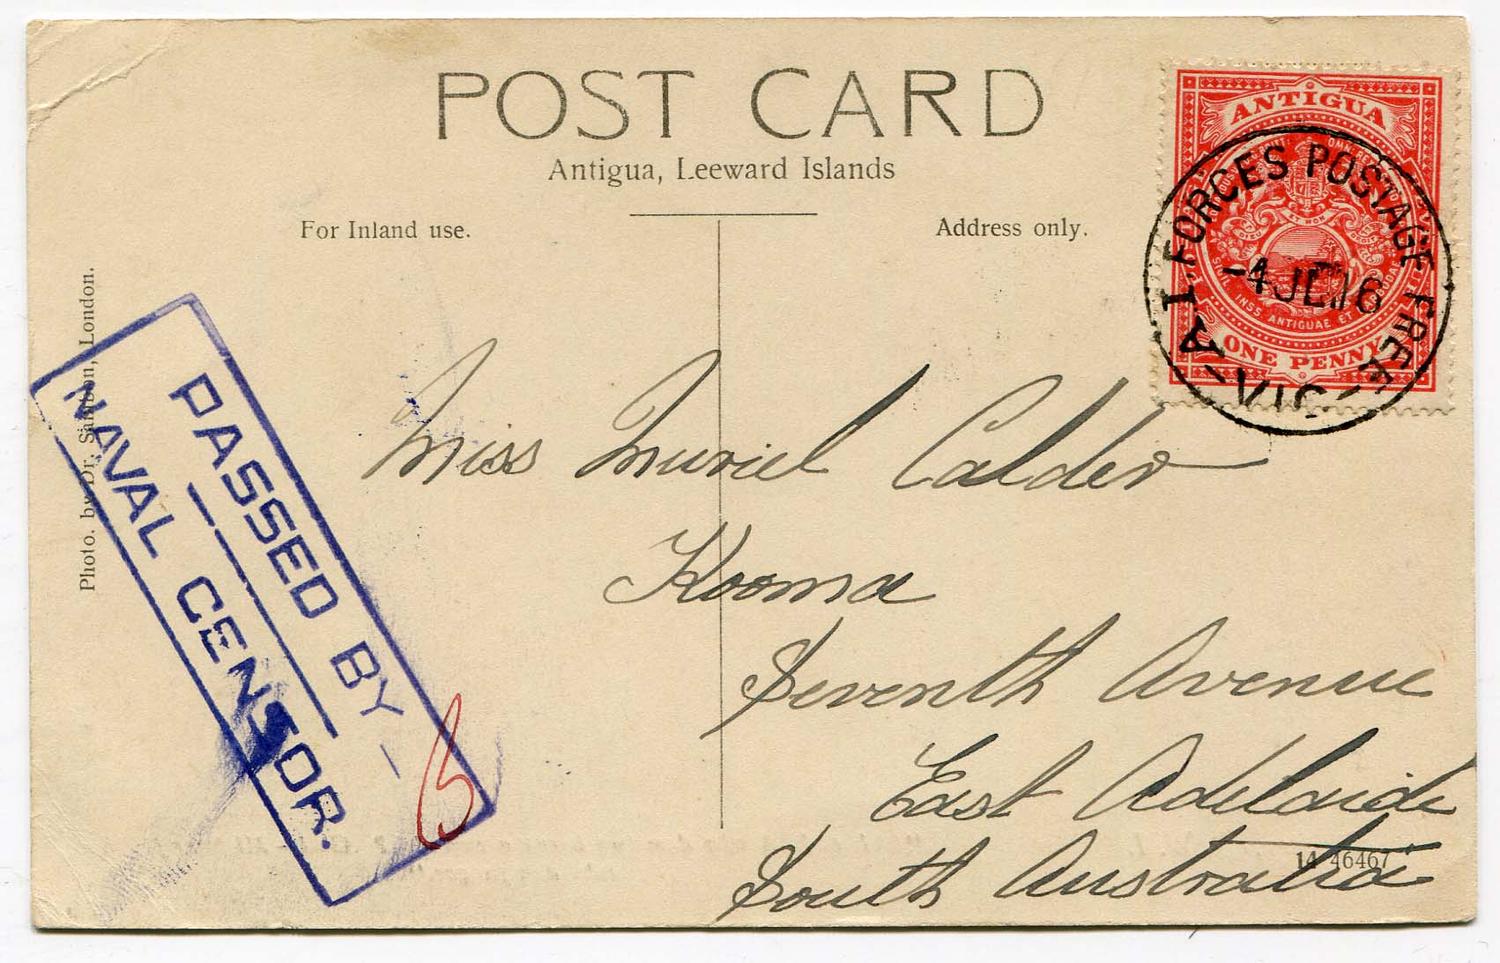 POST CARD
Antigua, Leeward Islands
For Inland use.
Address only.
ANTIGUA
ONE PENNY
A.I. FORCES POSTAGE FREE
-4 JL 16
-VIC-
Photo. by Dr. London.
PASSED BY -
NAVAL CENSOR.
6
Miss Muriel Calder
Kooma
Seventh Avenue
East Adelaide
South Australia
14 46467